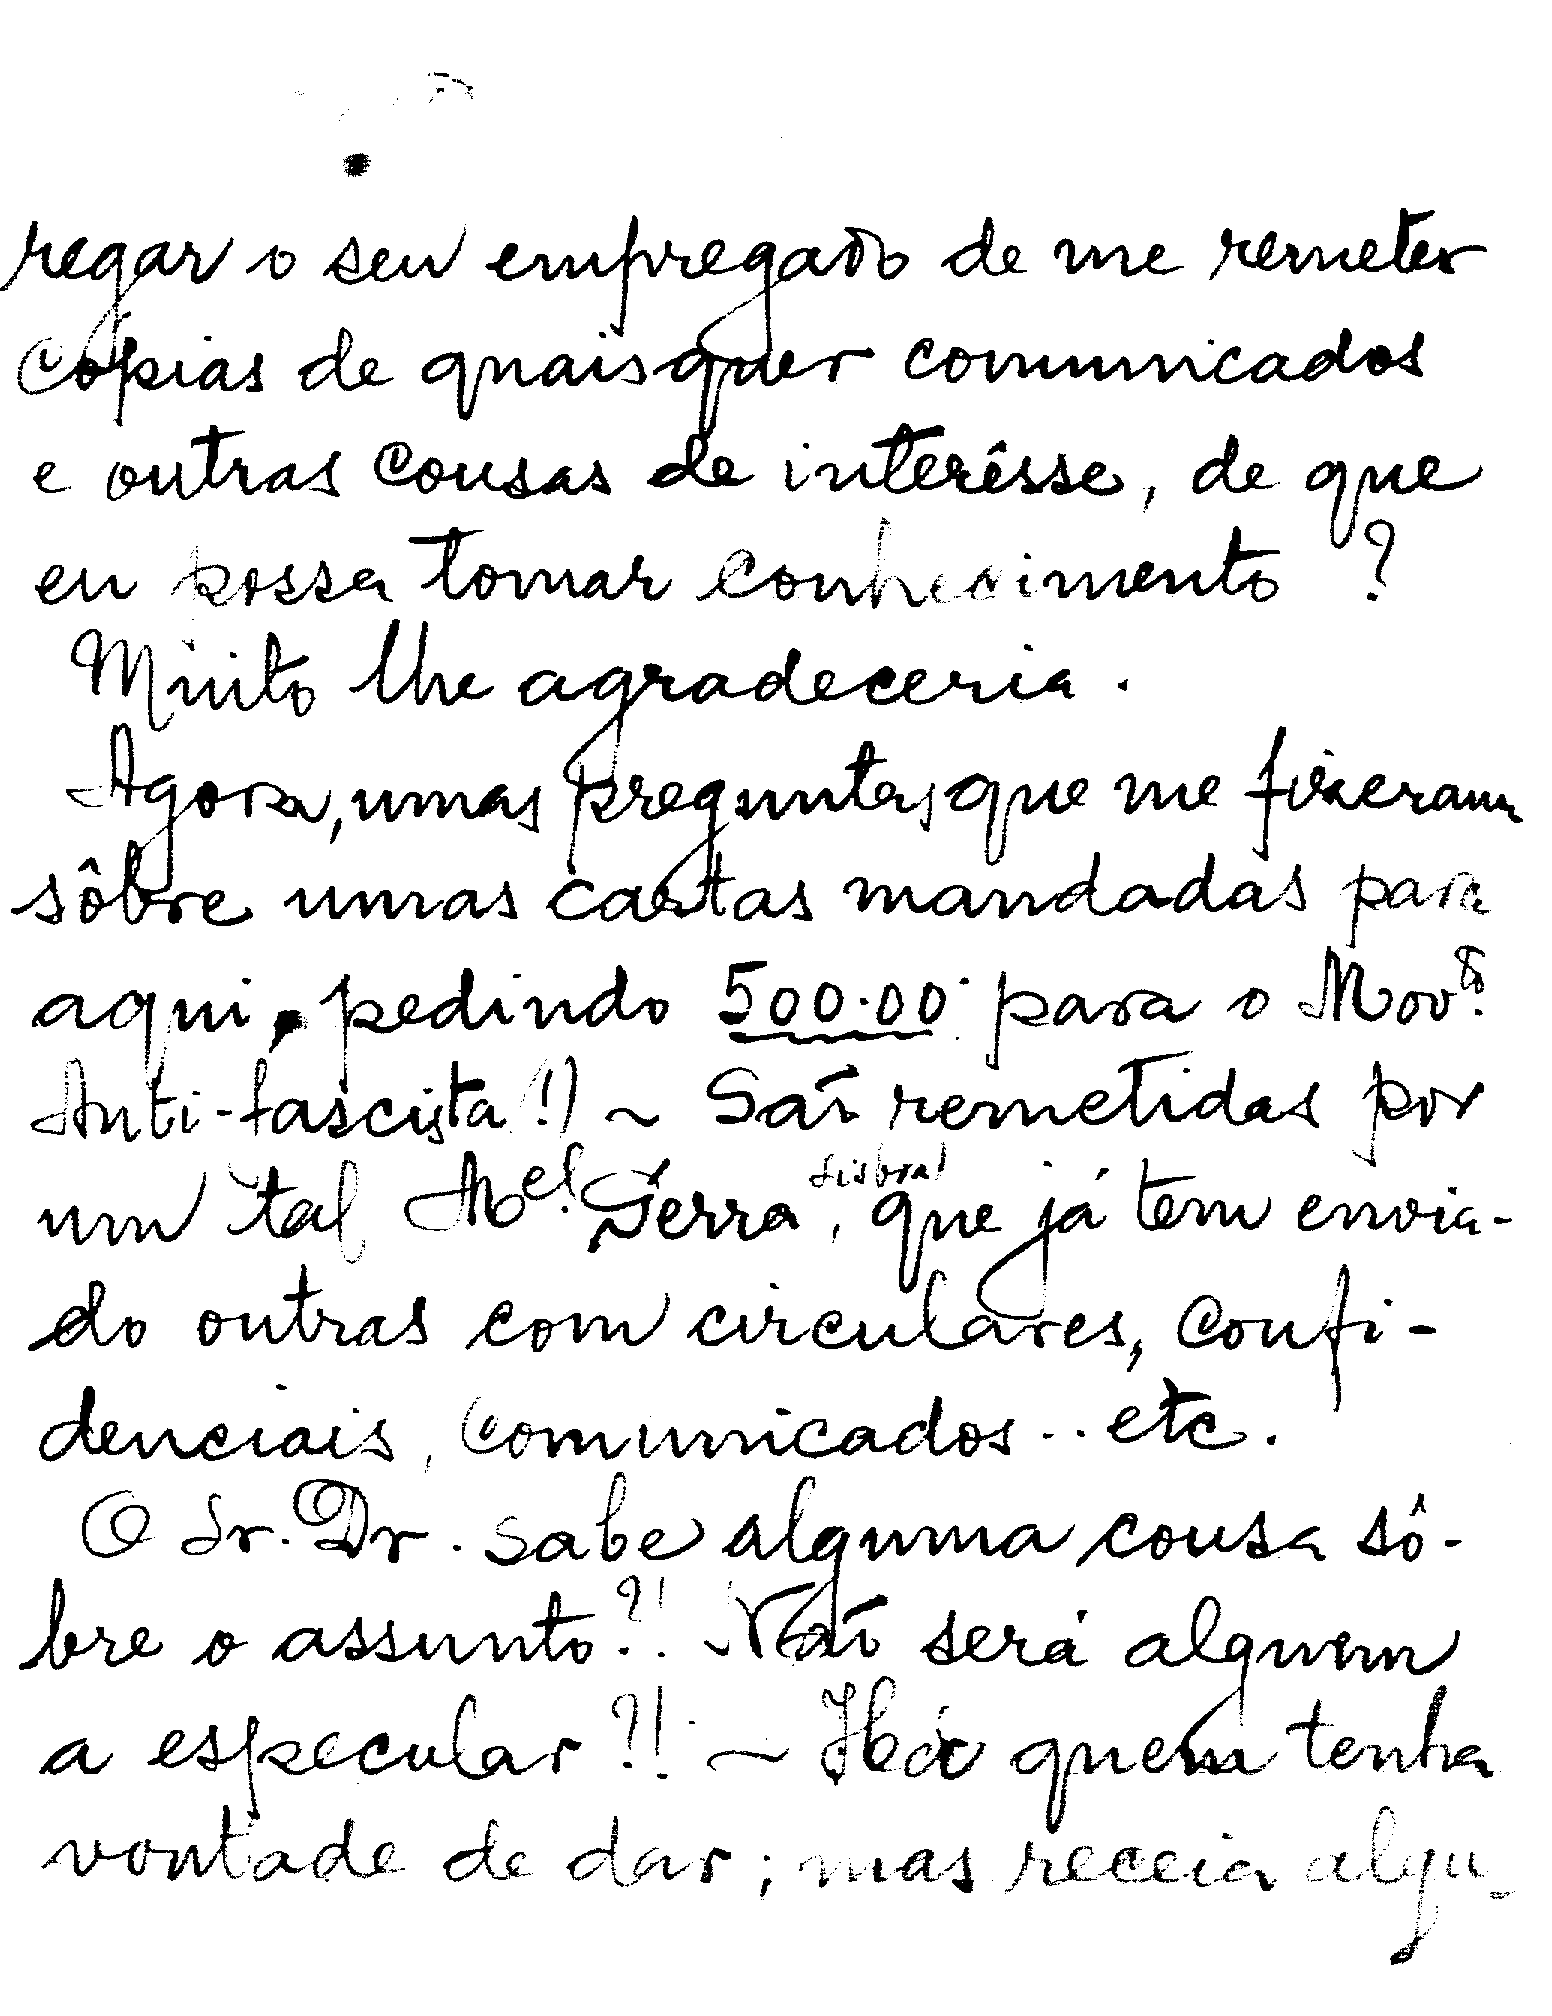 regar o seu empregado de me remeter
copias de quaisquer comunicados
e outras cousas de interêsse, de que
eu possa tomar conhecimento ?
Muito lhe agradeceria.
Agora, umas preguntas que me fizeram
sôbre umas cartas mandadas para
aqui, pedindo 500.00 para o Movto.
Anti-fascista (!) ~ Saõ remetidas por
um tal Mel. Serra, Lisboa, que já tem envia-
do outras com circulares, confi-
denciais, comunicados... etc.
O Sr. Dr. sabe alguma cousa sô-
bre o assunto?! Naõ será alguem
a especular?! ~ Há quem tenha
vontade de dar; mas receia algu-